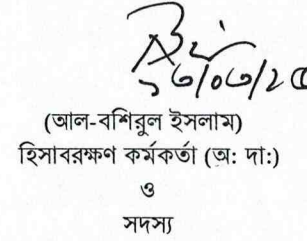 ১৩/০৩/২৫
(আল-বশিরুল ইসলাম)
হিসাবরক্ষণ কর্মকর্তা (অ: দা:)
ও
সদস্য